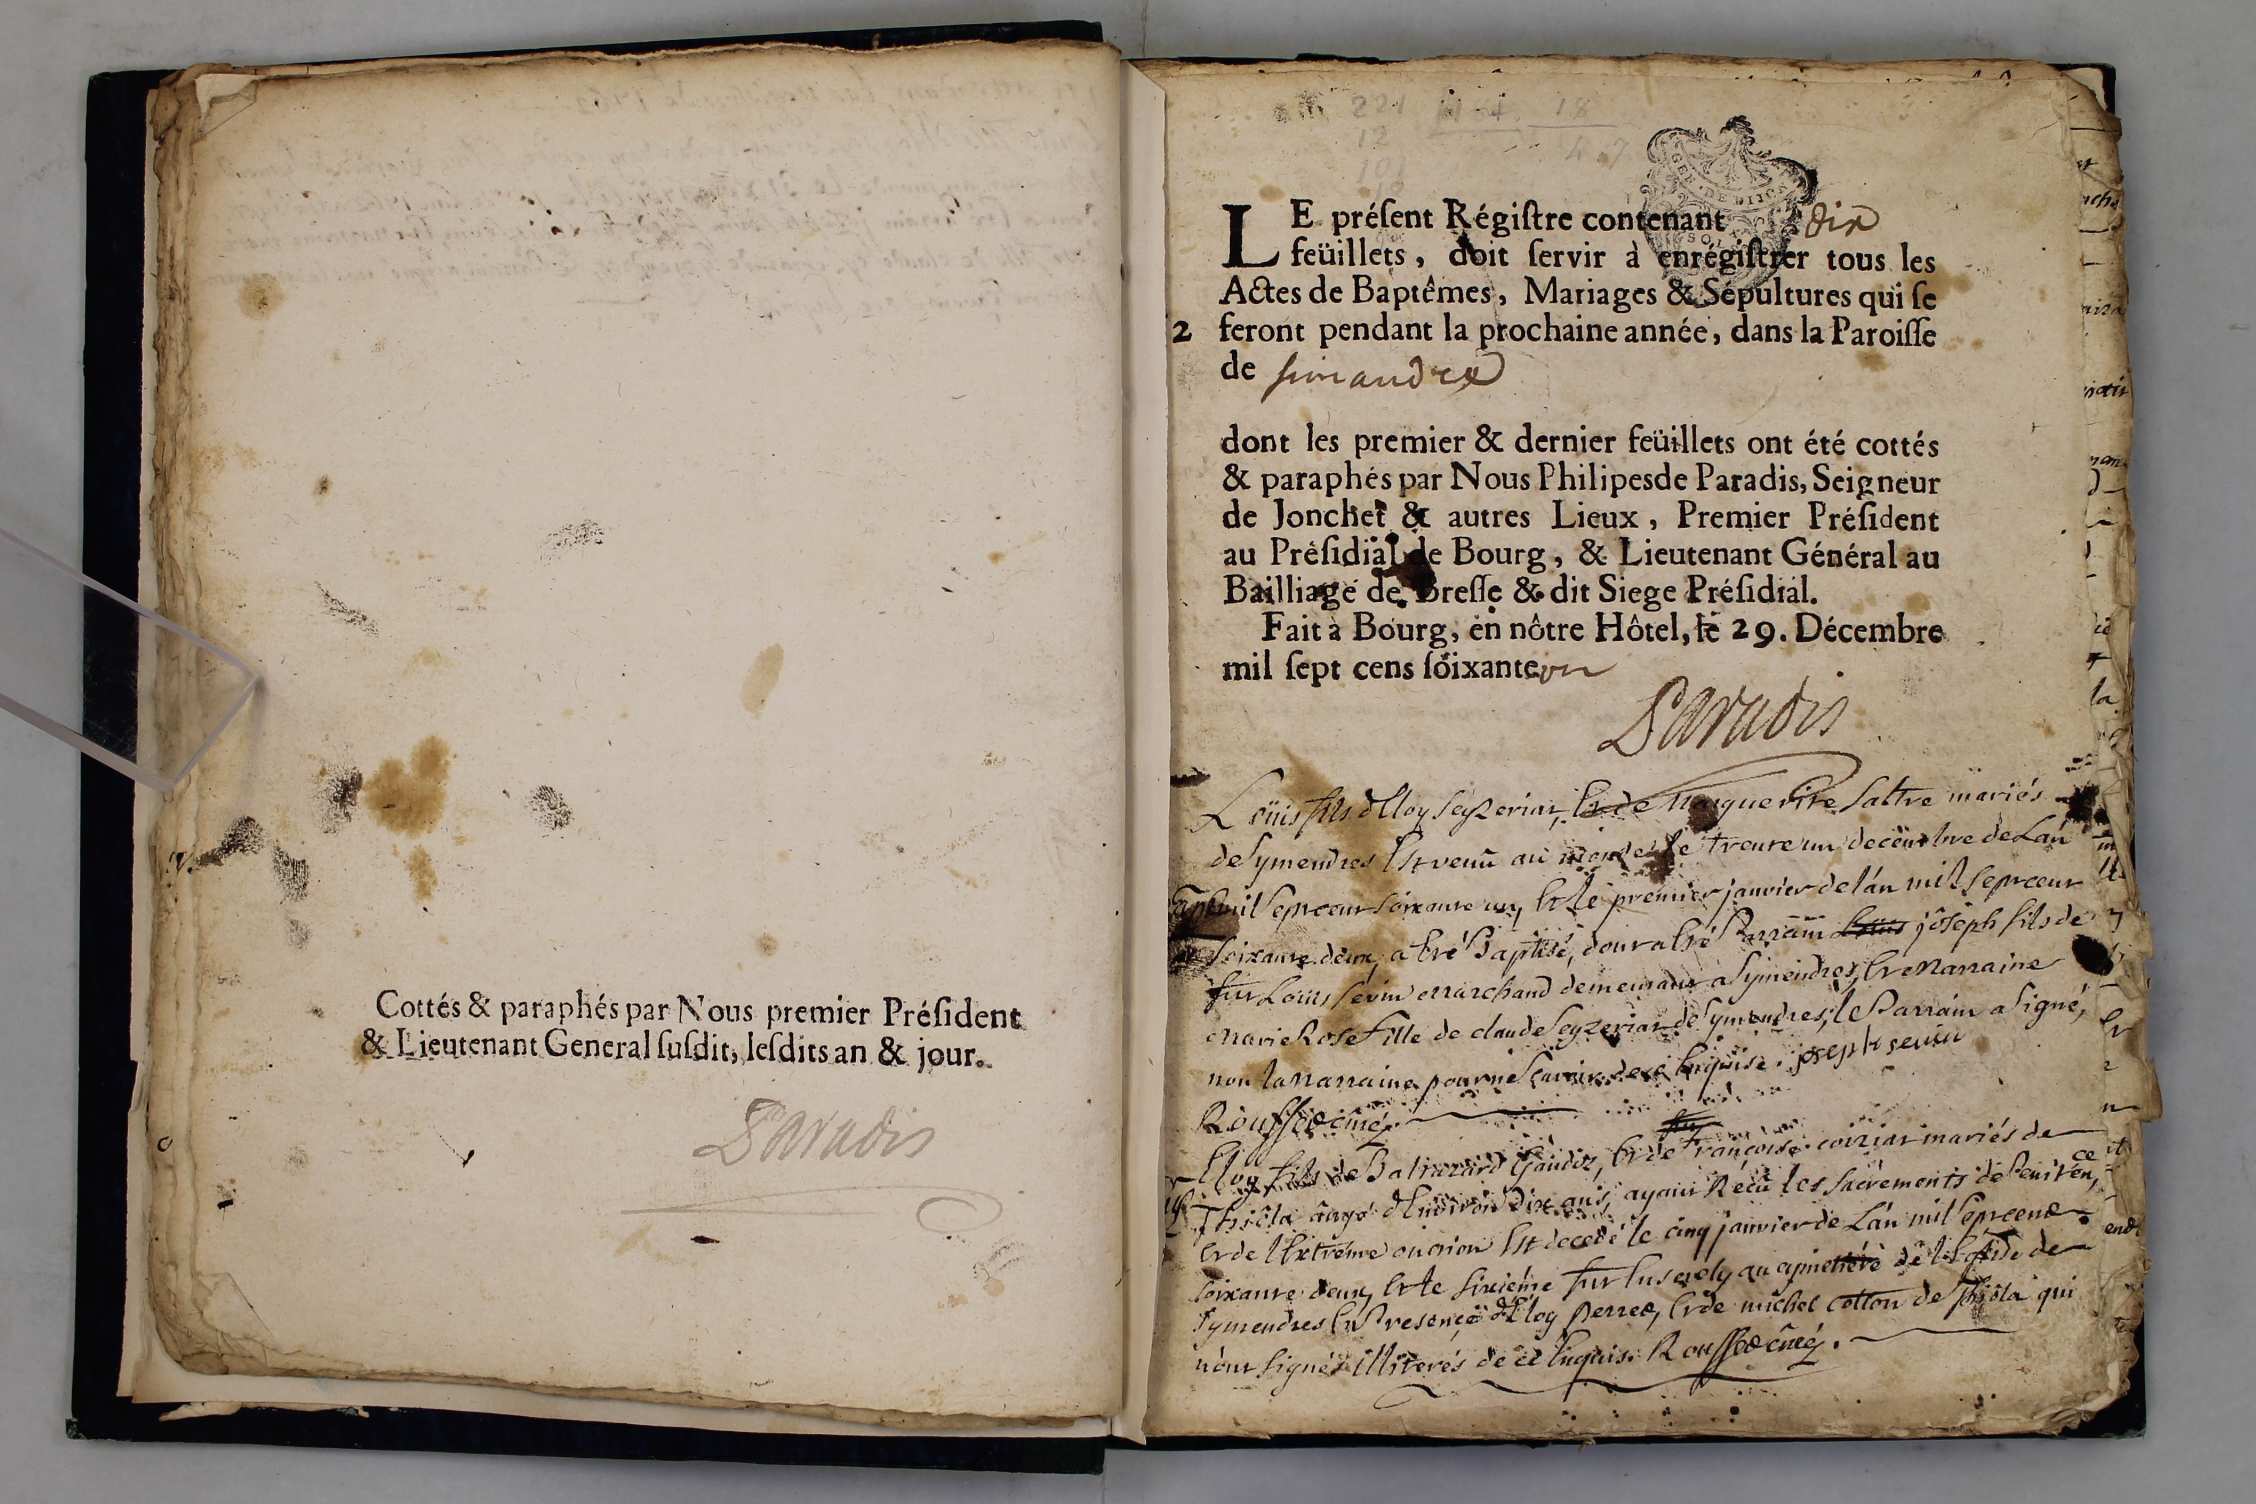 Cottés & paraphés par Nous premier Président
& Lieutenant General susdit, lesdits an & jour.
Paradis
221 18
12 4 7
101
GEN · DE DIJON
LE préſent Régiſtre contenant dix
feüillets, doit ſervir à enrégiſtrer tous les
Actes de Baptêmes, Mariages & Sépultures qui ſe
2 feront pendant la prochaine année, dans la Paroiſſe
de simandre
dont les premier & dernier feüillets ont été cottés
& paraphés par Nous Philipes de Paradis, Seigneur
de Jonchet & autres Lieux, Premier Préſident
au Préſidial de Bourg, & Lieutenant Général au
Bailliage de Breſſe & dit Siege Préſidial.
Fait à Bourg, en nôtre Hôtel, le 29. Décembre
mil ſept cens ſoixante un
Paradis
Loüis fils d'Eloy Seyzeriat, Et de Marguerite Saltre mariés
de Symendres Est venû au monde le trente un decembre de L'an
mil Sept cent Soixante un, Et le premier janvier de l'an mil Sept cent
Soixante deux, a Eté Baptisé, dont a Eté Parrain Loüis joseph fils de
fut Louis Sevin Marchand demeurant à Symendres, Et Marraine
Marie Rose Fille de claude Seyzeriat de Symendres, le Parrain a Signé,
non la Marraine pour ne Savoir de ce Enquise. joseph sevin
Rousset curé.
Eloy fils de Baltazard Gaudoz, Et de Françoise coiriat mariés de
Thiola ângé d'Environ dix ans, ayant Recû les Sacrements de Peniten,ce
Et de l'Extrême onction Est decedé le cinq janvier de L'an mil Sept cent
Soixante deux, Et le Sixiéme fut Ensevely au cimetiére de l'Eglise de
Symendres En Presence d'Eloy Perret, Et de michel cotton de Thiola qui
n'ont Signés illiterés de ce Enquis. Rousset curé.